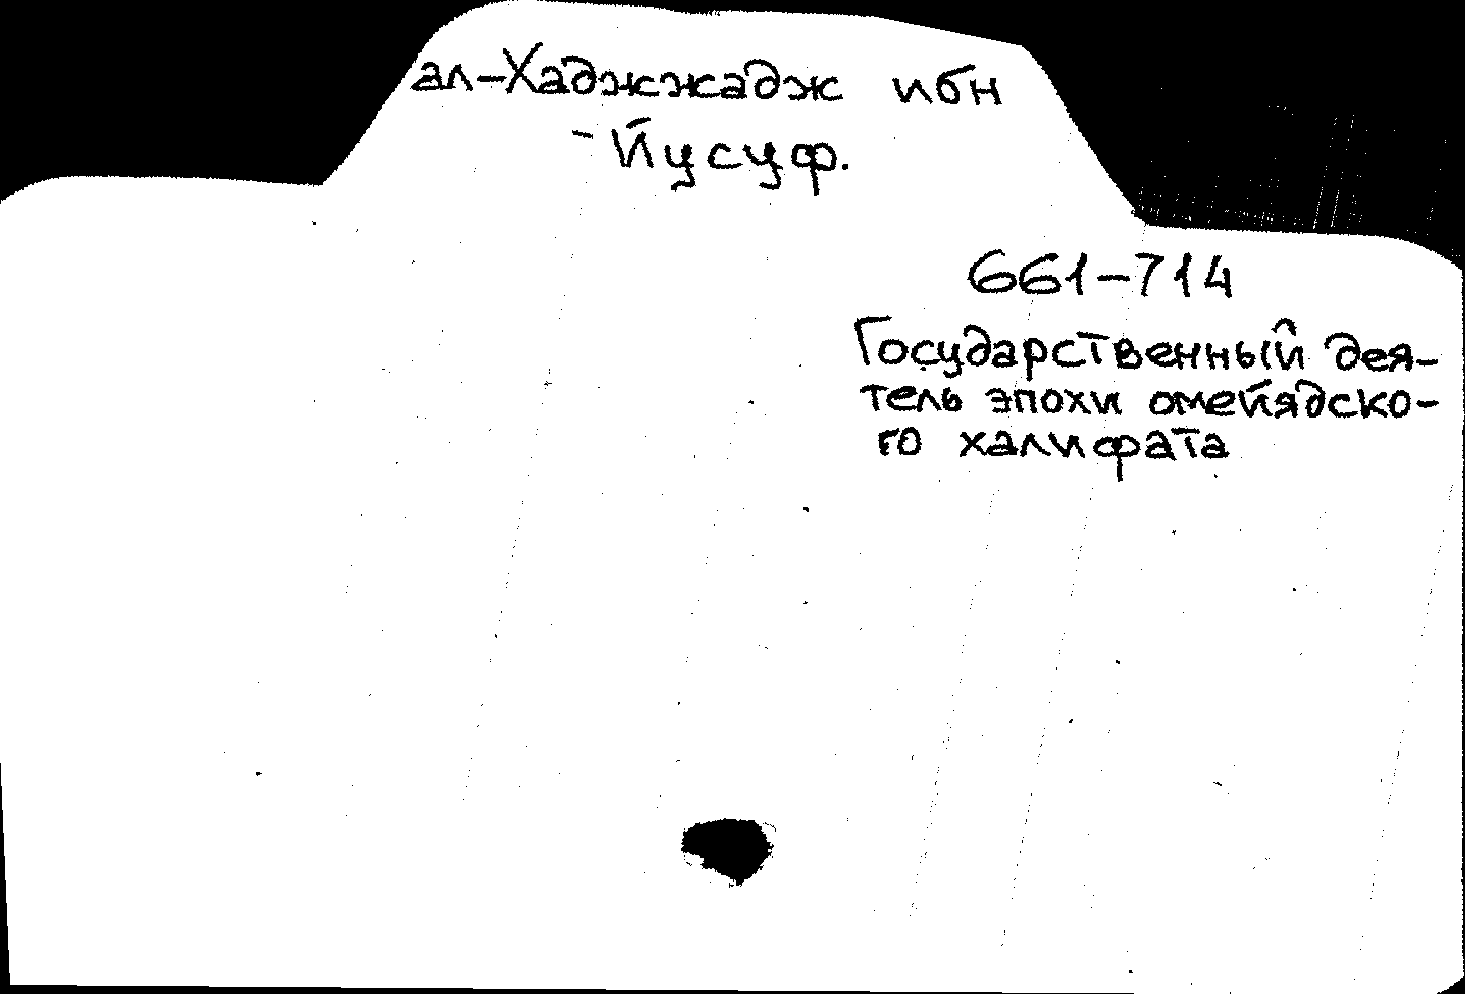 ал-Хаджжадж ибн
- Йусуф.
661-714
Государственный дея-
тель эпохи омейядско-
го халифата